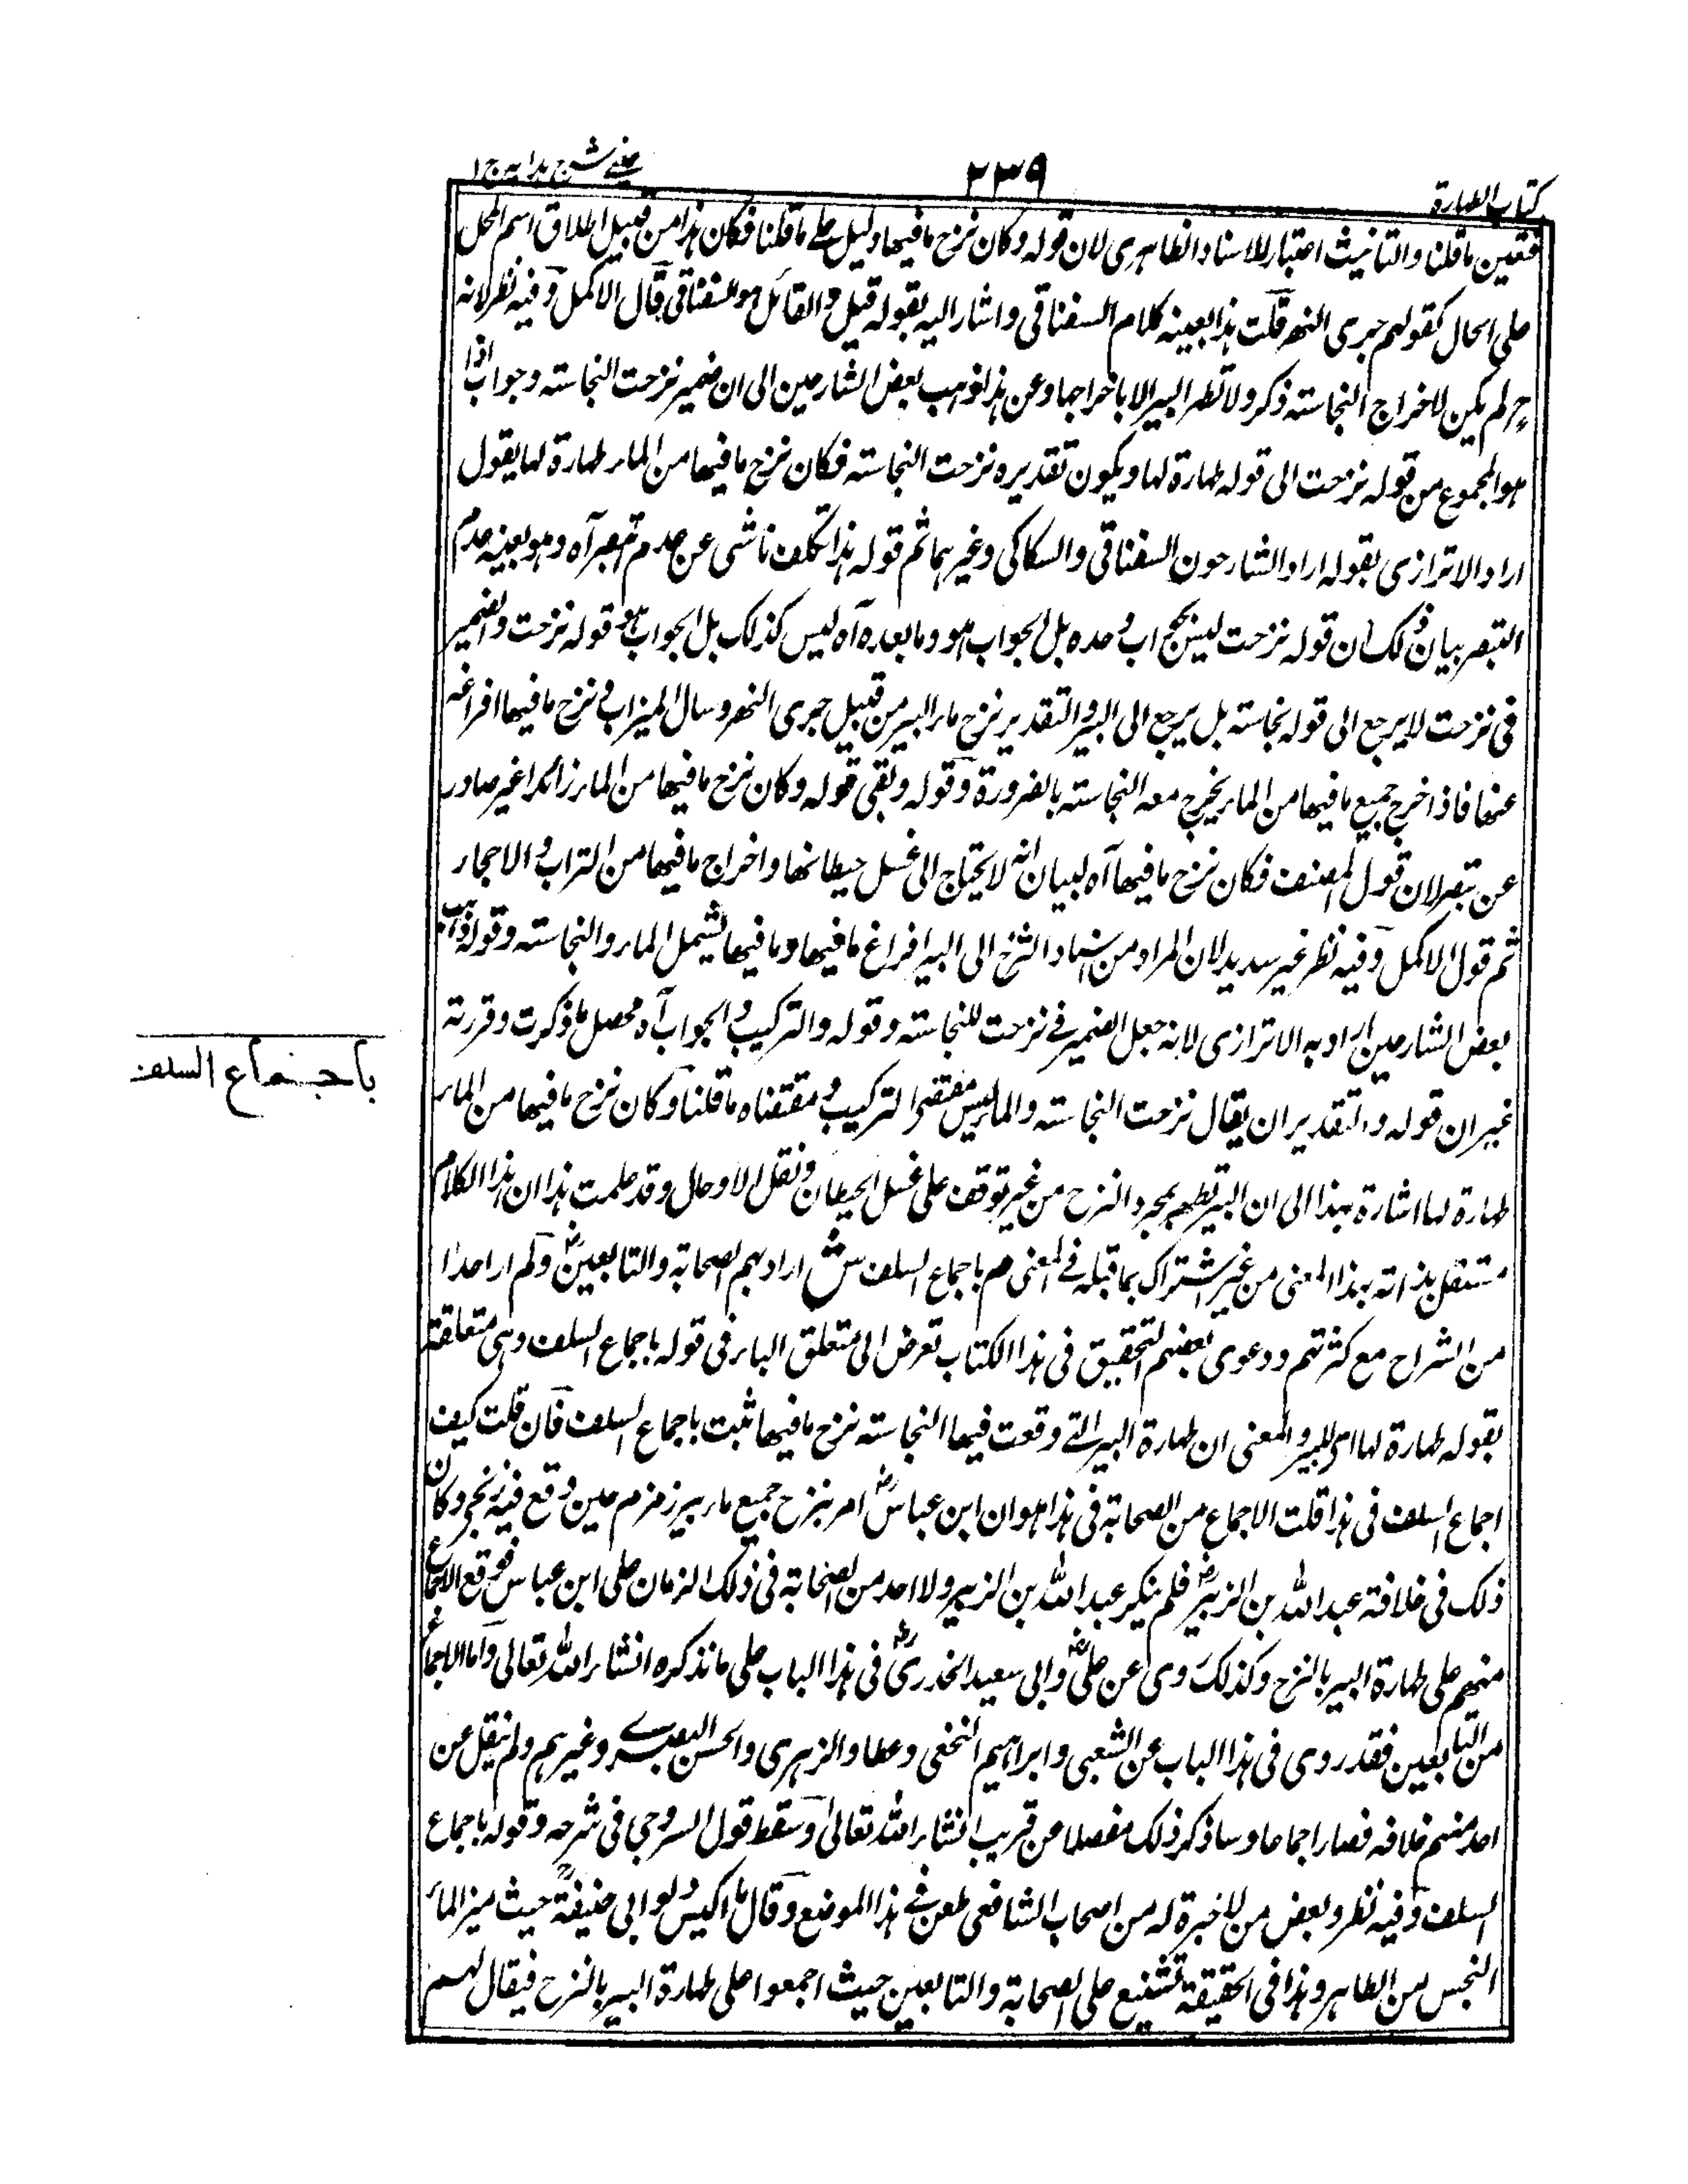 كتاب الطهارة
٢٣٩
عيني شرح هدايه ج ١
فتعين ما قلنا والتانيث اعتبار للاسناد الظاهرى لان قوله وكان نزح ما فيها دليل على ما قلنا فكان هذا من قبيل اطلاق اسم المحل
على الحال كقولهم جرى النهر قلت هذا بعينه كلام السغناقى واشار اليه بقوله قيل والقائل هو السغناقى قال الاكمل وفيه نظر لانه
ح لم يكن لاخراج النجاسته ذكر ولا تطهر البير الا باخراجها وعن هذا ذهب بعض الشارحين الى ان ضمير نزحت النجاسته وجواب اذا
هو المجموع من قوله نزحت الى قوله طهارة لها ويكون تقديره نزحت النجاسته فكان نزح ما فيها من المار طهارة لها يقول
اراد الاترازى بقوله اراد الشارحون السغناقى والسكاكى وغيرهما ثم قوله هذا تكلف ناشى عن عدم تبصر آه وهو بعينه عدم
التبصر بيان ذلك ان قوله نزحت ليس بجواب وحده بل الجواب هو وما بعده آه ليس كذلك بل الجواب هو قوله نزحت والضمير
فى نزحت لا يرجع الى قوله نجاسته بل يرجع الى البير والتقدير نزح مار البير من قبيل جرى النهر وسال الميزاب ونزح ما فيها افراغه
عنها فاذا خرج جميع ما فيها من المار يخرج معه النجاسته بالضرورة وقوله ولقى قوله وكان نزح ما فيها من المار زائدا غير صادر
عن تبصر لان قول المصنف فكان نزح ما فيها آه لبيان انه لا يحتاج الى غسل حيطانها واخراج ما فيها من التراب والاحجار
ثم قول الاكمل وفيه نظر غير سديد لان المراد من اسناد النزح الى البير افراغ ما فيها وما فيها يشمل المار والنجاسته وقوله ذهب
بعض الشارحين اراد به الاترازى لانه جعل الضمير فى نزحت للنجاسته وقوله والتركيب والجواب آه محصل ما ذكرت وقررته
غير ان قوله والتقدير ان يقال نزحت النجاسته والمار ليس مقتضى التركيب ومقتضاه ما قلنا وكان نزح ما فيها من المار
طهارة لها اشارة بهذا الى ان البير تطهر بمجرد النزح من غير توقف على غسل الحيطان ونقل الاوحال وقد علمت هذا ان هذا الكلام
مستقل بذاته بهذا المعنى من غير اشتراك بما قبله فى المعنى م باجماع السلف ش اراد بهم الصحابة والتابعين رض ولم ار احدا
من الشراح مع كثرتهم ودعوى بعضهم التحقيق فى هذا الكتاب تعرض الى متعلق البار فى قوله باجماع السلف وهى متعلقة
بقوله طهارة لها اى للبير والمعنى ان طهارة البير التى وقعت فيها النجاسته نزح ما فيها ثبت باجماع السلف فان قلت كيف
اجماع السلف فى هذا قلت الاجماع من الصحابة فى هذا هو ان ابن عباس رض امر بنزح جميع مار بير زمزم حين وقع فيه زنجى وكان
ذلك فى خلافة عبد الله بن الزبير رض فلم ينكر عبد الله بن الزبير ولا احد من الصحابة فى ذلك الزمان على ابن عباس فوقع الاجماع
منهم على طهارة البير بالنزح وكذلك روى عن على رض وابى سعيد الخدرى رض فى هذا الباب على ما نذكره انشار الله تعالى واما الاجماع
من التابعين فقد روى فى هذا الباب عن الشعبى وابراهيم النخعى وعطا والزهرى والحسن البصرى وغيرهم ولم ينقل عن
احد منهم خلافه فصار اجماعا وساذكر ذلك مفصلا عن قريب انشار الله تعالى وسقط قول السروجى فى شرحه وقوله باجماع
السلف وفيه نظر وبعض من لا خبرة له من اصحاب الشافعى طعن فى هذا الموضع وقال ما اكيس دلو ابى حنيفة حيث ميز المار
النجس من الطاهر وهذا فى الحقيقة تشنيع على الصحابة والتابعين حيث اجمعوا على طهارة البير بالنزح فيقال لهم
باجماع السلف